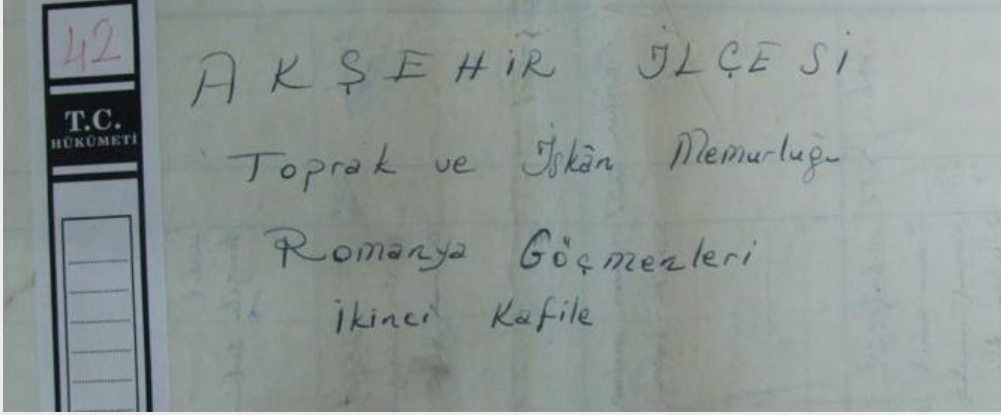 42
T.C.
HÜKÜMETİ
AKŞEHİR İLÇESİ
Toprak ve İskân Memurluğu
Romanya Göçmenleri
İkinci Kafile